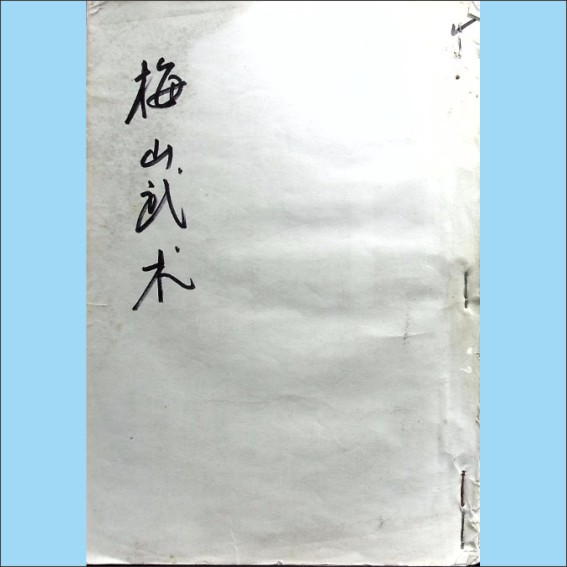 梅山武术